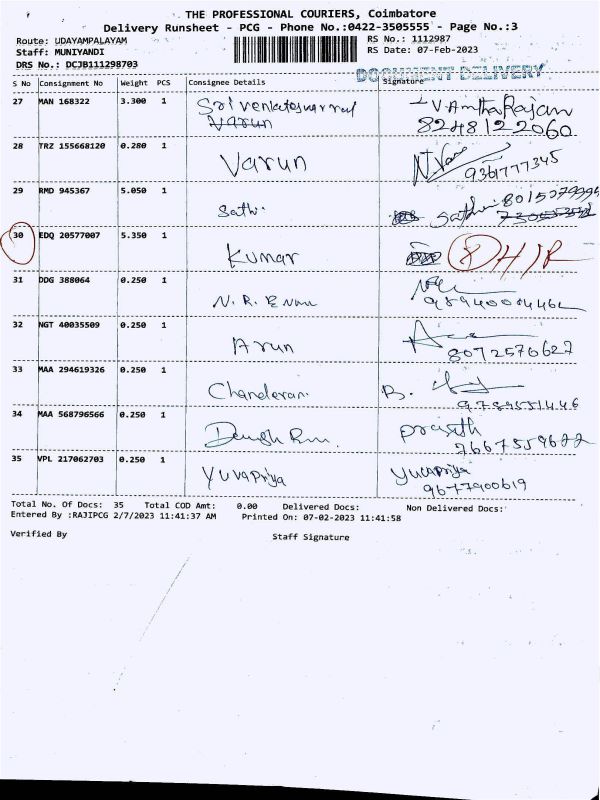 THE PROFESSIONAL COURIERS, Coimbatore
Delivery Runsheet - PCG - Phone No.:0422-3505555 - Page No.:3
Route: UDAYAMPALAYAM RS No.: 1112987
Staff: MUNIYANDI RS Date: 07-Feb-2023
DRS No.: DCJB111298703
DOCUMENT DELIVERY
S No Consignment No Weight PCS Consignee Details Signature
27 MAN 168322 3.300 1 Varun
8248122060
28 TRZ 155668120 0.280 1 Varun
9361777345
29 RMD 945367 5.050 1 Sathi
30 EDQ 20577007 5.350 1 Kumar
31 DDG 388064 0.250 1 N. R.
32 NGT 40035509 0.250 1 Arun
8072570627
33 MAA 294619326 0.250 1 B.
34 MAA 568796566 0.250 1
35 VPL 217062703 0.250 1 Yuvapriya Yuvapriya
9677900619
Total No. Of Docs: 35 Total COD Amt: 0.00 Delivered Docs: Non Delivered Docs:
Entered By :RAJIPCG 2/7/2023 11:41:37 AM Printed On: 07-02-2023 11:41:58
Verified By Staff Signature